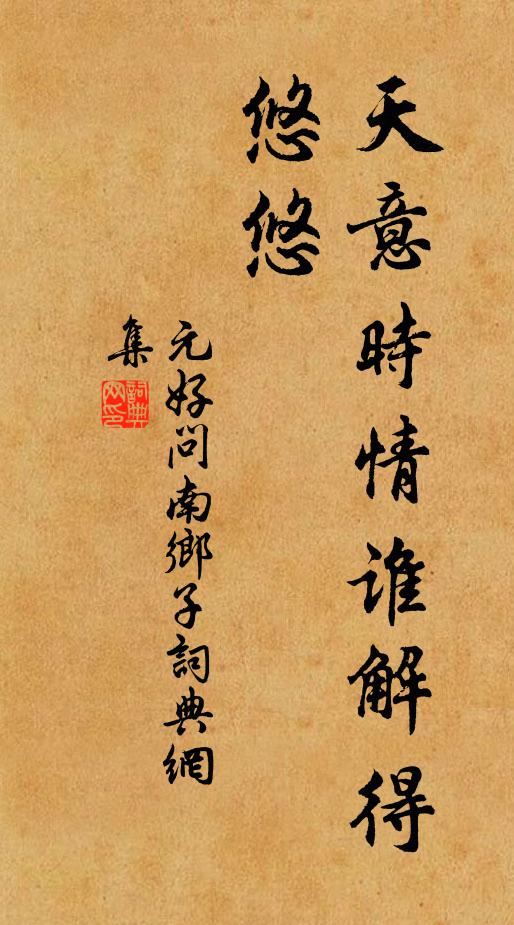 天意時情谁解得
悠悠
元好问南鄉子詞典網
集
詞典網印